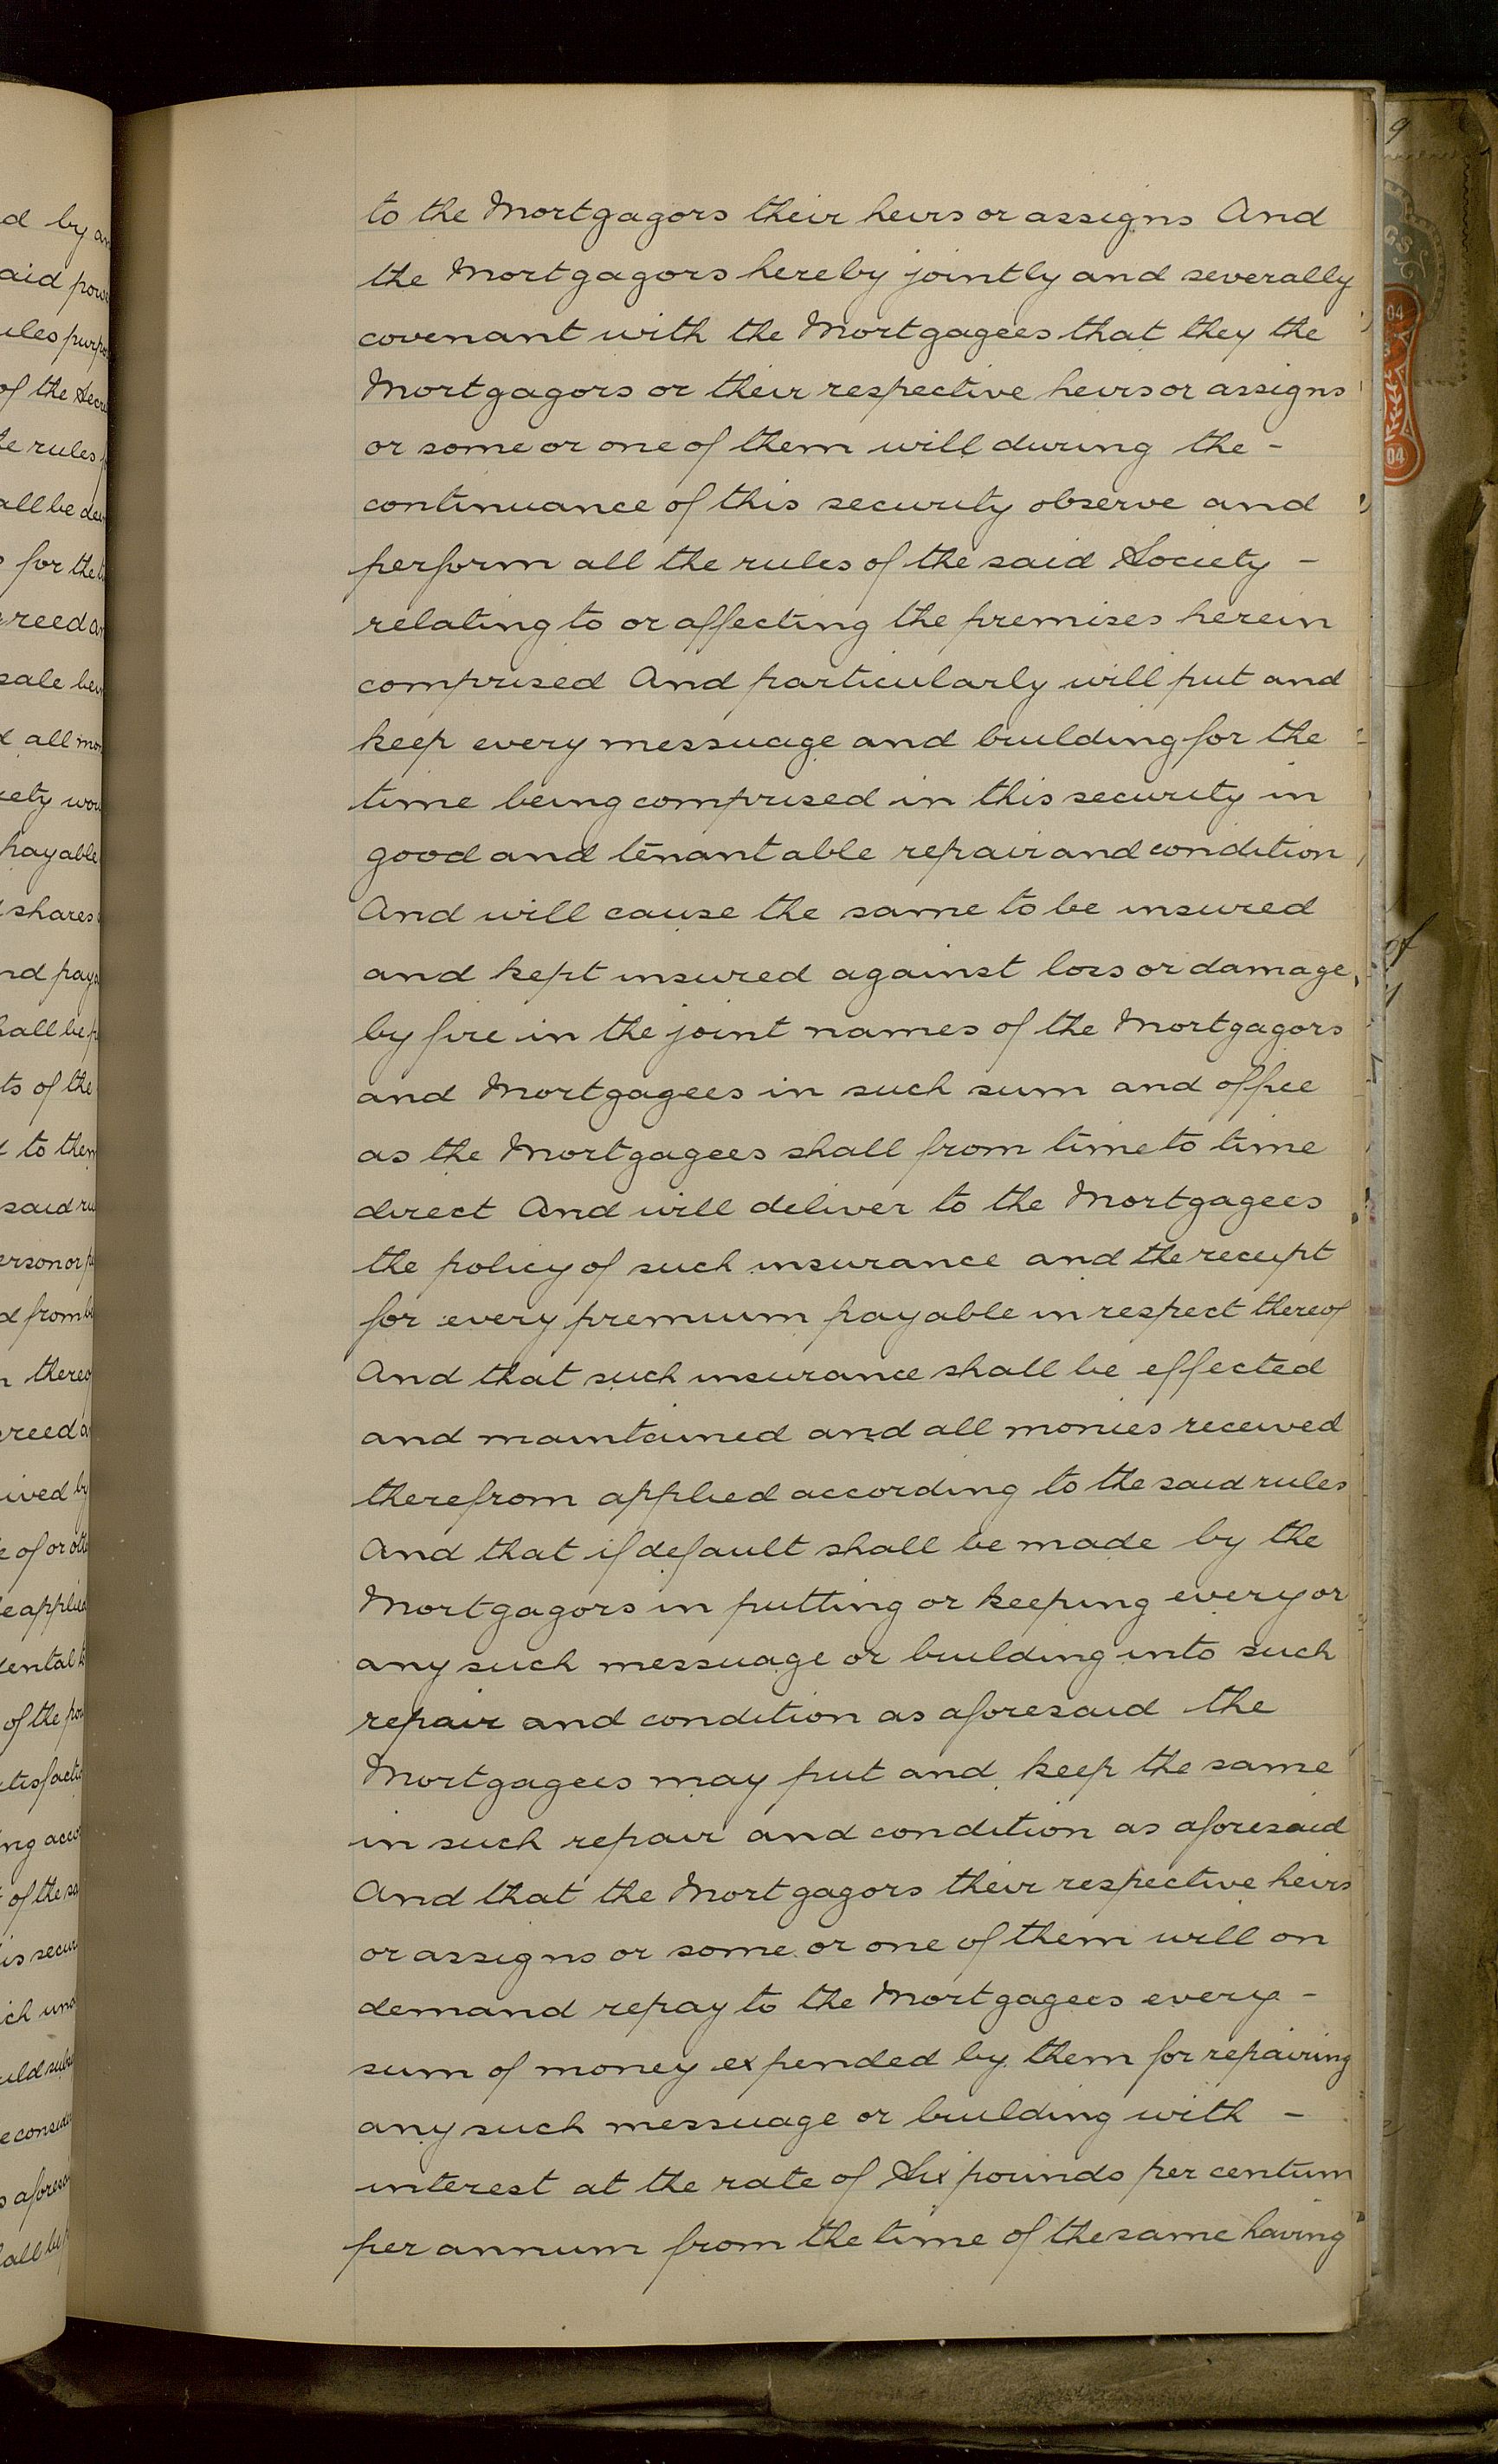 to the Mortgagors their heirs or assigns And
the Mortgagors hereby jointly and severally
covenant with the Mortgagees that they the
Mortgagors or their respective heirs or assigns
or some or one of them will during the -
continuance of this security observe and
perform all the rules of the said Society -
relating to or affecting the premises herein
comprised And particularly will put and
keep every messuage and building for the
time being comprised in this security in
good and tenantable repair and condition
And will cause the same to be insured
and kept insured against loss or damage
by fire in the joint names of the Mortgagors
and Mortgagees in such sum and office
as the Mortgagees shall from time to time
direct And will deliver to the Mortgagees
the policy of such insurance and the receipt
for every premium payable in respect thereof
And that such insurance shall be effected
and maintained and all monies received
therefrom applied according to the said rules
And that if default shall be made by the
Mortgagors in putting or keeping every or
any such messuage or building into such
repair and condition as aforesaid the
Mortgagees may put and keep the same
in such repair and condition as aforesaid
And that the Mortgagors their respective heirs
or assigns or some or one of them will on
demand repay to the Mortgagees every -
sum of money expended by them for repairing
any such messuage or building with -
interest at the rate of Six pounds per centum
per annum from the time of the same having